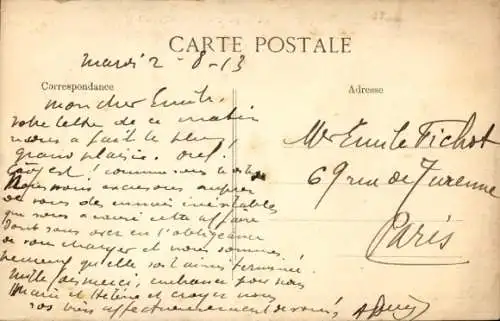 CARTE POSTALE
mardi 2-8-13
Correspondance
Adresse
mon cher Emile,
votre lettre de ce matin
nous a fait le plus
grand plaisir. ouf!
Ça y est! comme on a
Nous nous excusons auprès
de vous des ennuis inévitables
que vous a causé cette affaire
dont vous avez eu l'obligeance
de vous charger et nous sommes
heureux qu'elle soit ainsi terminée.
Mille fois merci, embrassez pour nous
Marie et Hélène et croyez nous
vos bien affectueusement dévoués,
Mr Emile Fichot
69 rue de Turenne
Paris